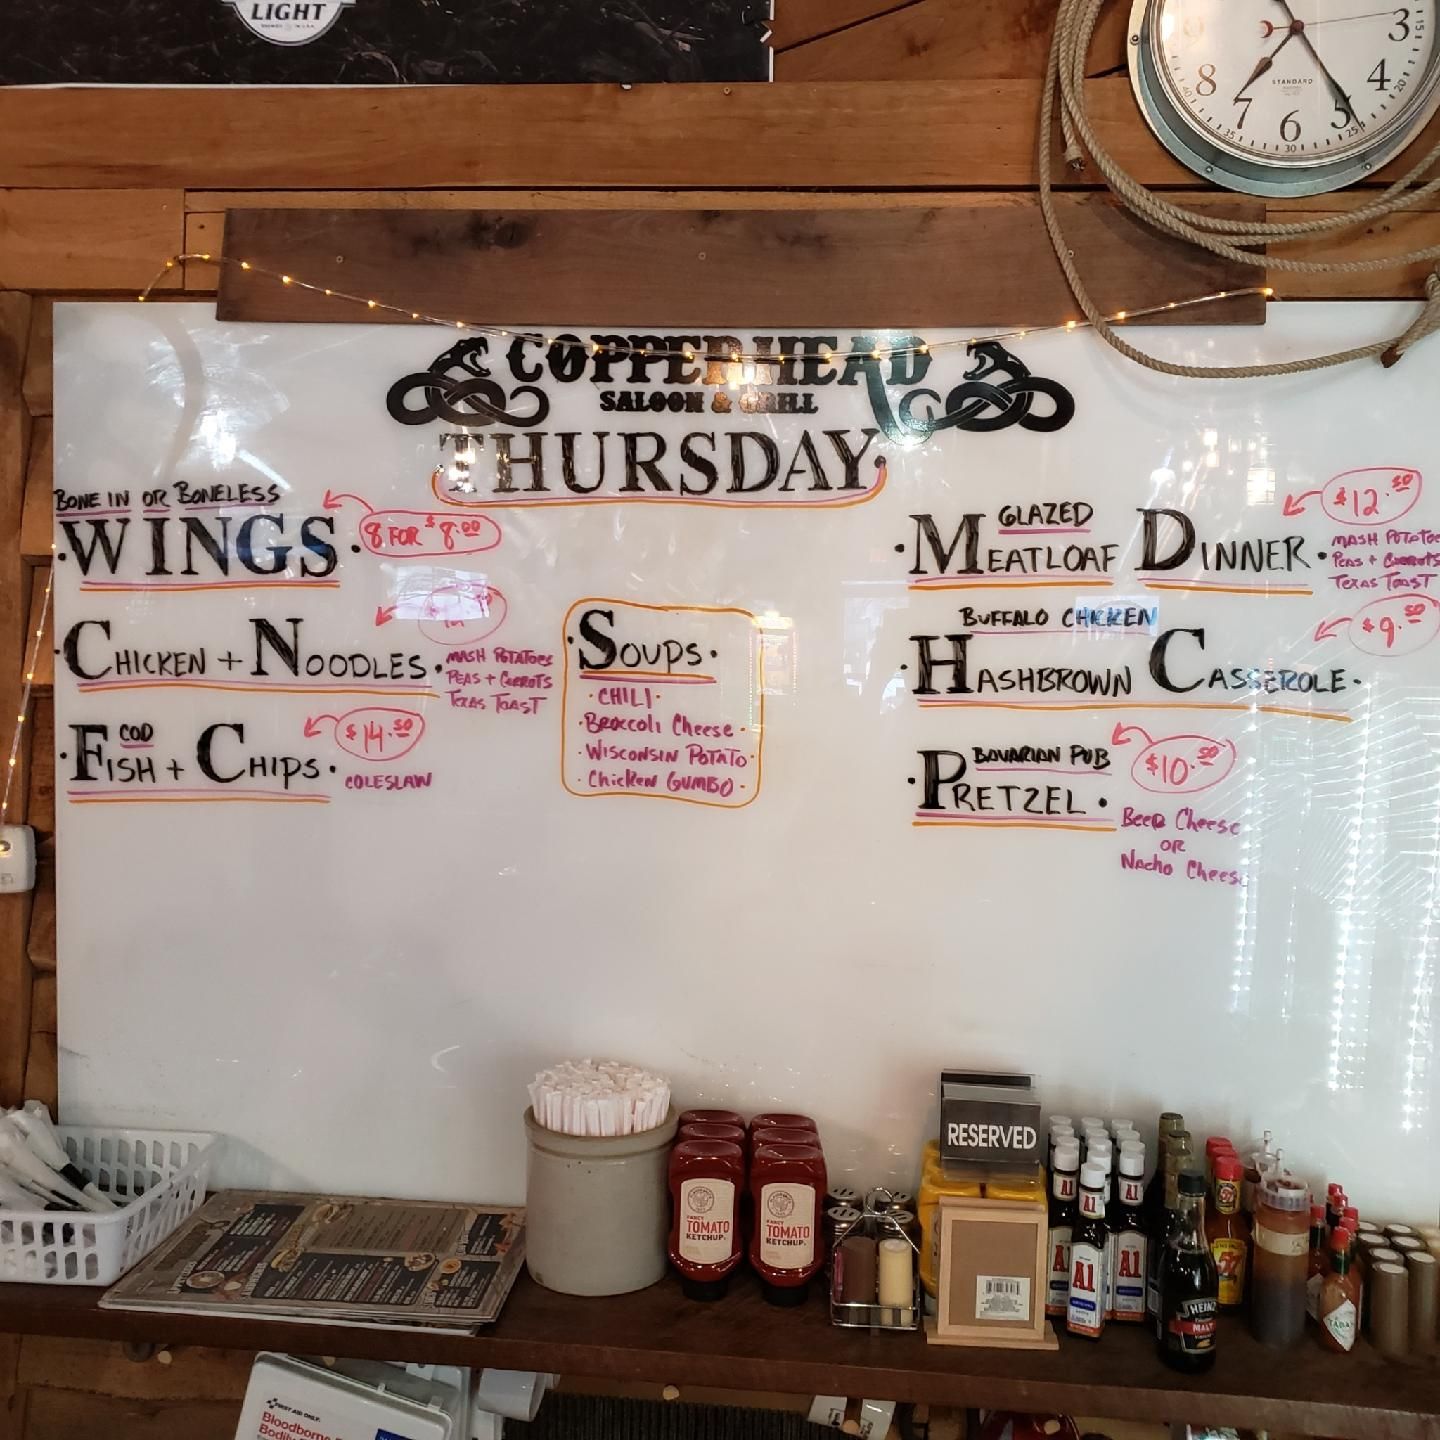 LIGHT
8 7 6 5 4 3
STANDARD
35 30 25 20 15
COPPERHEAD
SALOON & GRILL
THURSDAY
BONE IN OR BONELESS
WINGS
8 FOR $8.00
CHICKEN + NOODLES
MASH POTATOES
PEAS + CARROTS
TEXAS TOAST
COD
FISH + CHIPS
$14.50
COLESLAW
SOUPS
CHILI
BROCCOLI Cheese
WISCONSIN POTATO
Chicken GUMBO
GLAZED
MEATLOAF DINNER
$12.50
MASH POTATOE
PEAS + CARROTS
TEXAS TOAST
BUFFALO CHICKEN
HASHBROWN CASSEROLE
$9.50
BAVARIAN PUB
PRETZEL
$10.50
Beer Cheese
OR
Nacho Cheese
RESERVED
FANCY
TOMATO
KETCHUP
FANCY
TOMATO
KETCHUP
A1
A1
A1
A1
A1
57
HEINZ
MALT
FIRST AID ONLY
Bloodborne
Bodily